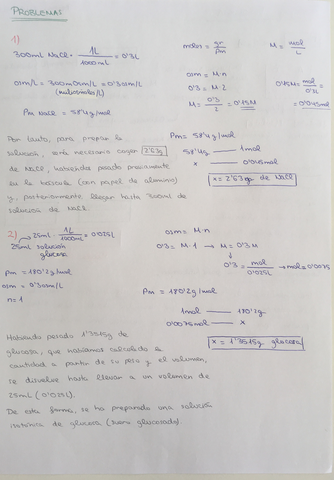 PROBLEMAS
1)
300ml NaCl · 1L / 1000ml = 0'3L
osm/L = 300mOsm/L = 0'30sm/L
(miliosmoles/L)
Pm NaCl = 58'4g/mol
moles = gr / Pm
M = mol / L
osm = M·n
0'3 = M·2
M = 0'3 / 2 = 0'15M
0'15M = mol / 0'3L = 0'045mol
Por tanto, para preparar la
solución, sería necesario coger 2'63g
de NaCl, habiendos pesado previamente
en la báscula (con papel de aluminio)
y, posteriormente llegar hasta 300ml de
solución de NaCl.
Pm = 58'4g/mol
58'4g 1mol
x 0'045mol
x = 2'63gr de NaCl
2) 25ml · 1L / 1000ml = 0'025L
25ml solución
glucosa
Pm = 180'2g/mol
osm = 0'30sm/L
n=1
osm = M·n
0'3 = M·1 → M = 0'3M
0'3 = mol / 0'025L → mol = 0'0075
Pm = 180'2g/mol
1mol 180'2g
0'0075mol x
x = 1'3515g glucosa
Habiendo pesado 1'3515g de
glucosa, que habíamos calculado la
cantidad a partir de su peso y el volumen,
se disuelve hasta llevar a un volumen de
25ml (0'025L).
De esta forma, se ha preparado una solución
isotónica de glucosa (suero glucosado).